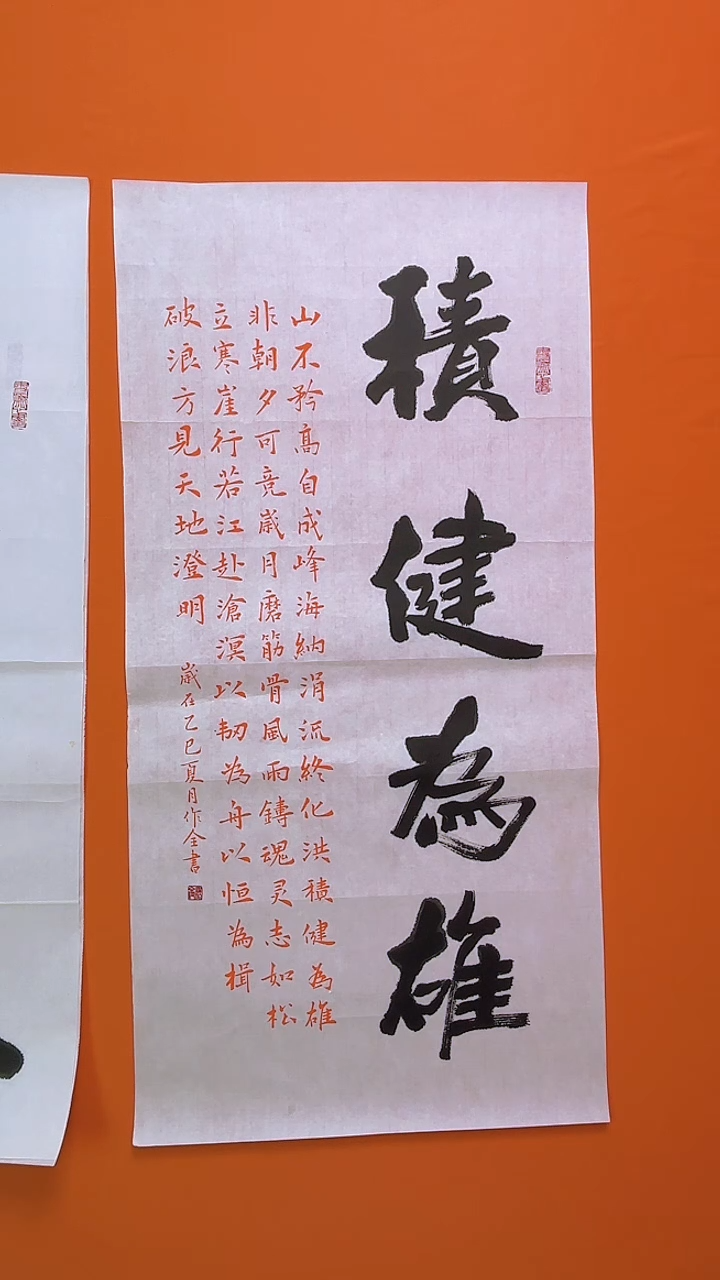 積健為雄
山不矜高自成峰海納涓流終化洪積健為雄
非朝夕可竞歲月磨筋骨風雨鑄魂灵志如松
立寒崖行若江赴滄溟以韧為舟以恒為楫
破浪方見天地澄明
歲在乙巳夏月作全書